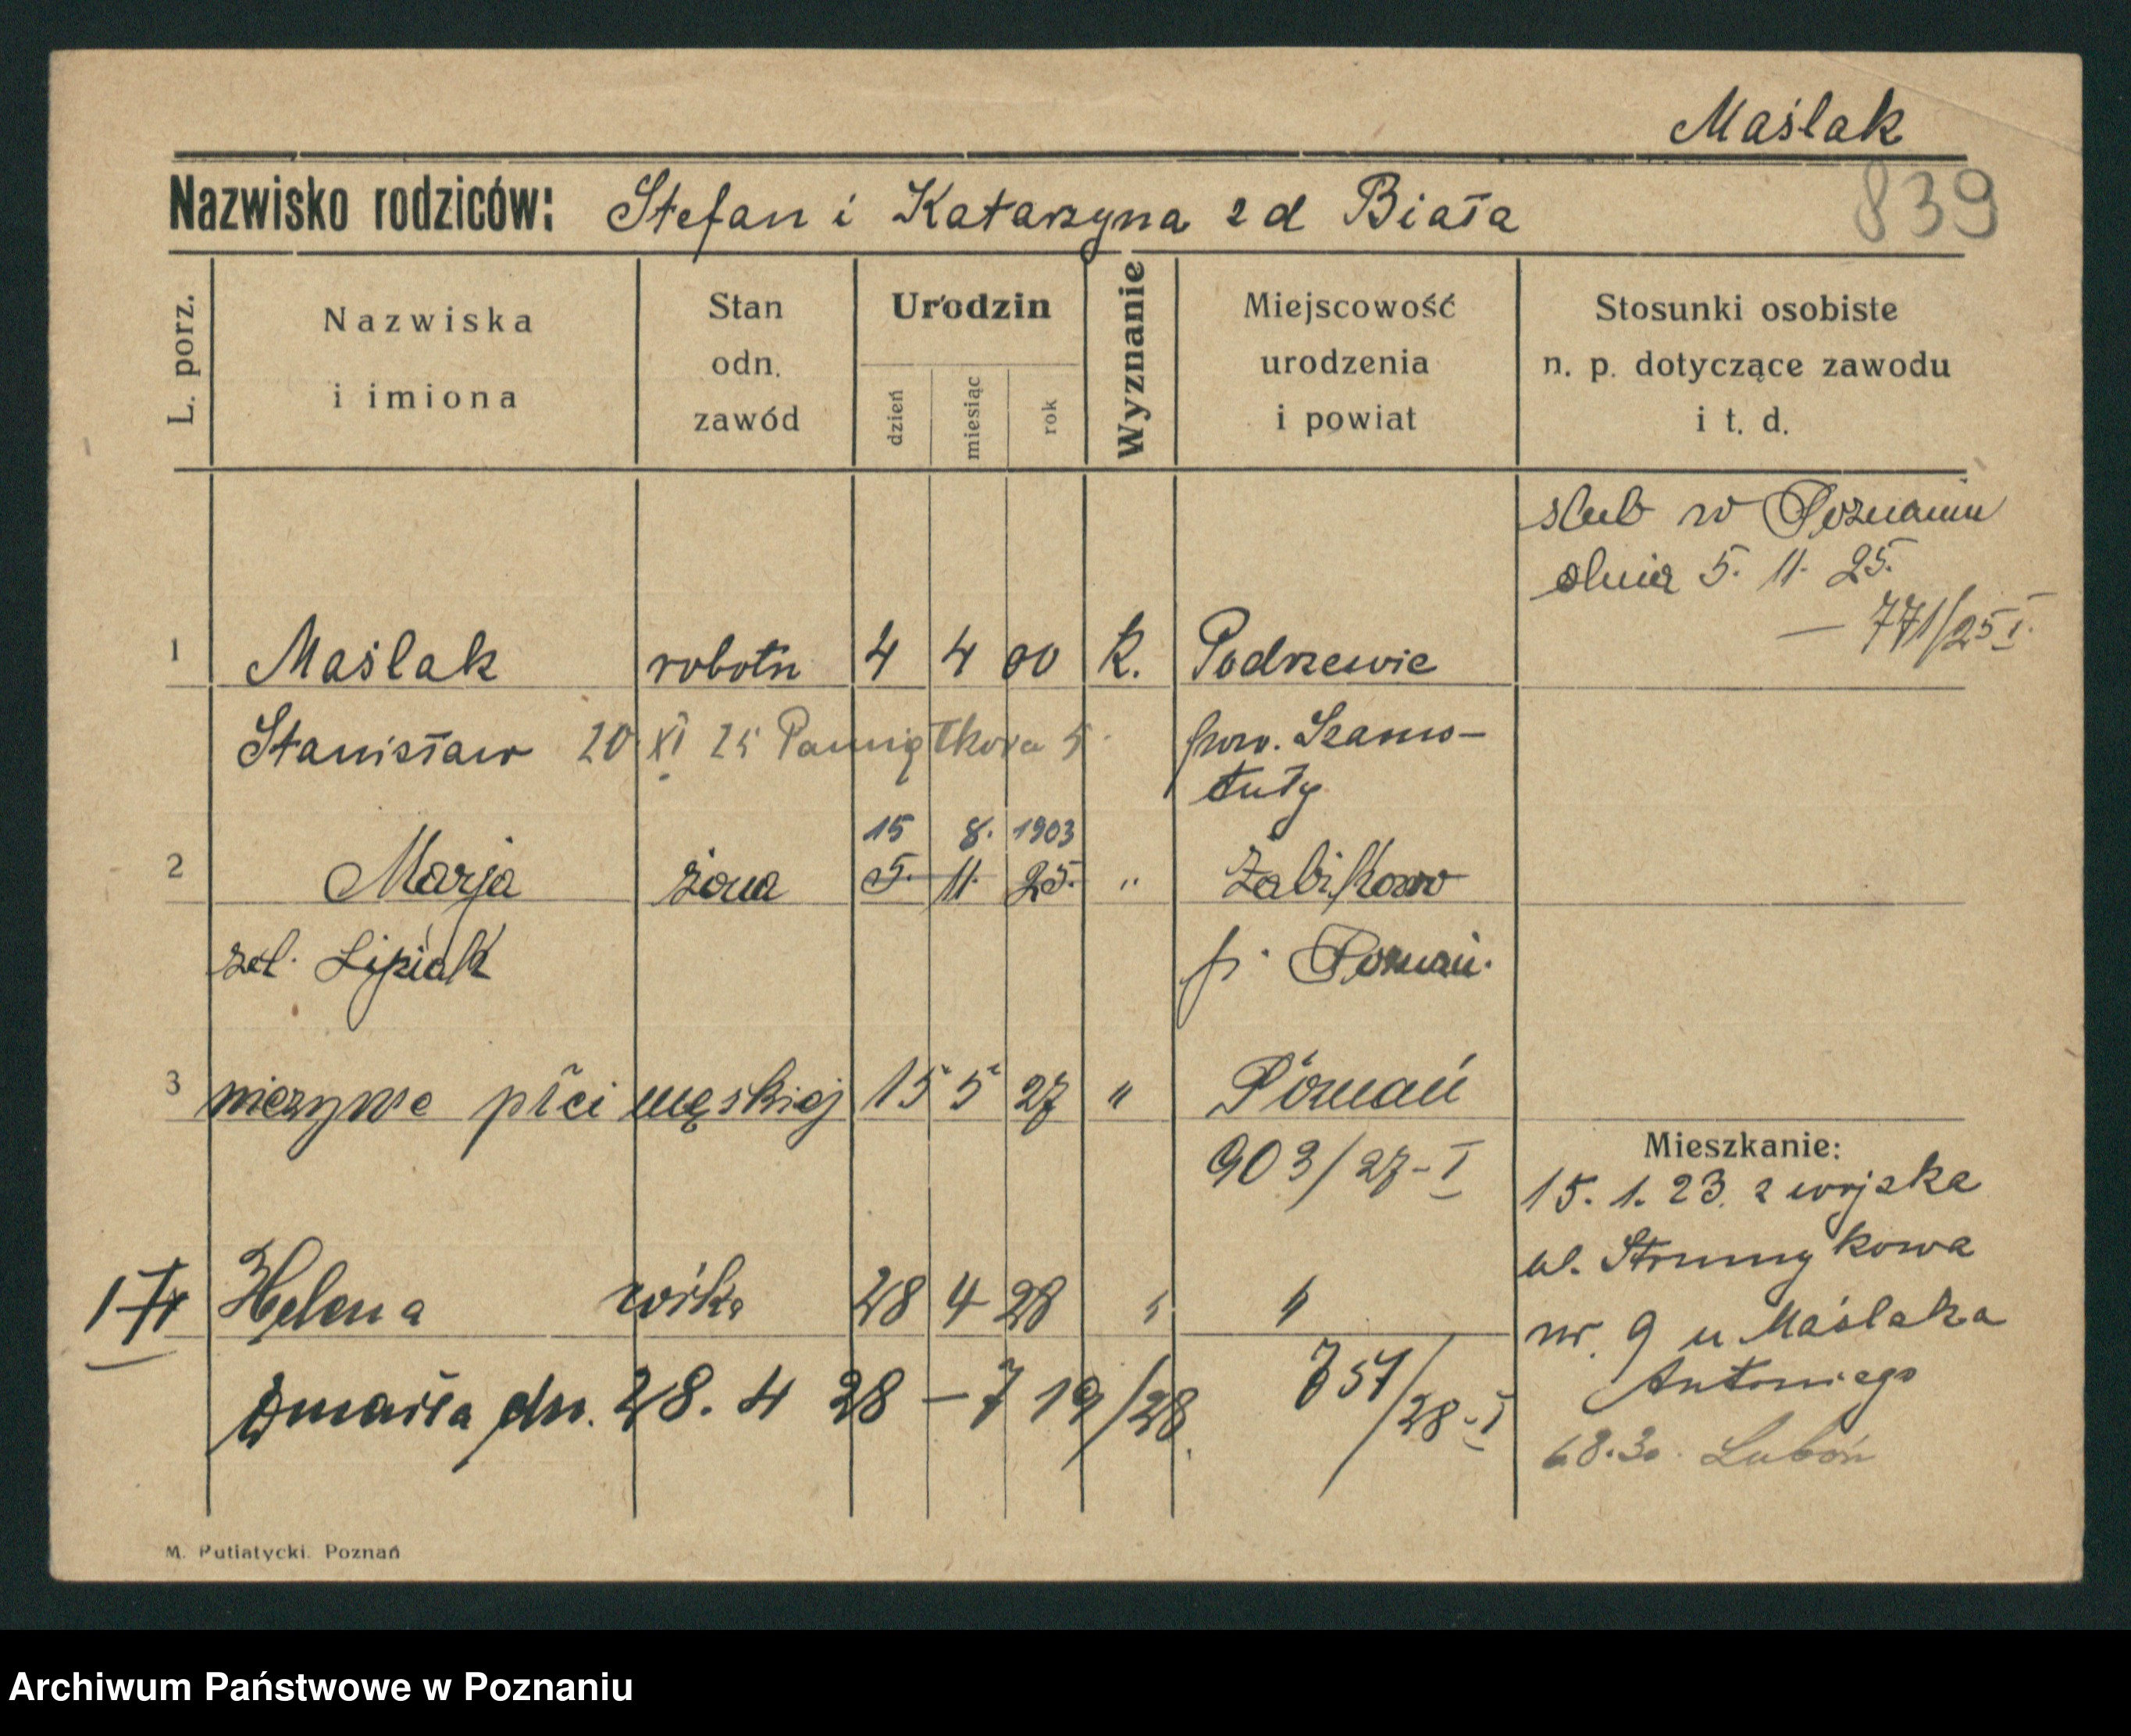 Maślak
Nazwisko rodziców: Stefan i Katarzyna zd Biała
839
L. porz.
Nazwiska i imiona
Stan odn. zawód
Urodzin
dzień
miesiąc
rok
Wyznanie
Miejscowość urodzenia i powiat
Stosunki osobiste n. p. dotyczące zawodu i t. d.
slub w Poznaniu
dnia 5. 11. 25.
— 771/25 I.
1 Maślak robotn 4 4 00 K. Podrzewie
Stanisław 20 XI 25 Pamiątkowa 5 pow. Szamo-
tuły
15 8. 1903
2 Marja żona 5. 11. 25. " Żabikowo
zd. Lipiak p. Poznań.
3 nieżywe płci męskiej 15 5 27 " Poznań
903/27-I
Mieszkanie:
15. 1. 23. z wojska
ul. Strumykowa
nr. 9 u Maślaka
Antoniego
Helena córka 28 4 28 " "
757/28-I
Zmarła dn. 28. 4 28 - 719/28.
68.30. Luboń
M. Putiatycki. Poznań
Archiwum Państwowe w Poznaniu